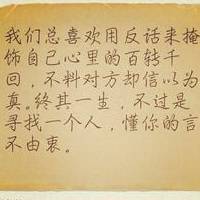 我们总喜欢用反话来掩
饰自己心里的百转千
回，不料对方却信以为
真。终其一生，不过是
寻找一个人，懂你的言
不由衷。